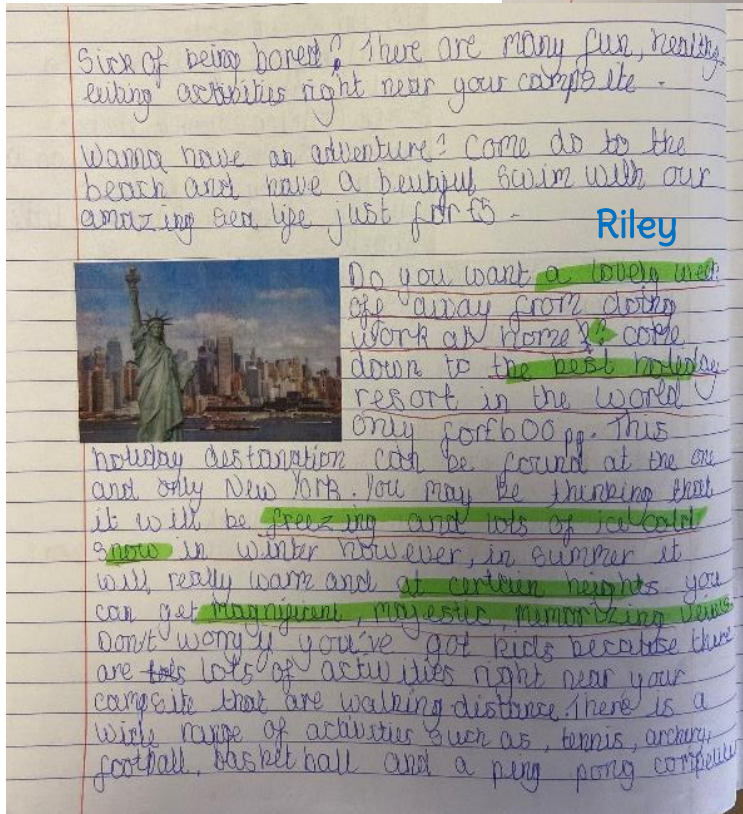 Sick of being bored? There are many fun, healthy,
exiting activities right near your campsite.
Wanna have an adventure? Come do to the
beach and have a beutiful swim with our
amazing sea life just for £5.
Riley
Do you want a lovely week
off away from doing
work at home? come
down to the best holiday
resort in the world
only for £600 pp. This
holiday destanation can be found at the one
and only New York. You may be thinking that
it will be freezing and lots of ice cold
snow in winter however, in summer it
will really warm and at certien heights you
can get magnificent, majestic, memorizing veiws.
Don't worry if you've got kids because there
are lots of activities right near your
campsite that are walking distance. There is a
wide range of activities such as, tennis, archery,
football, basketball and a ping pong